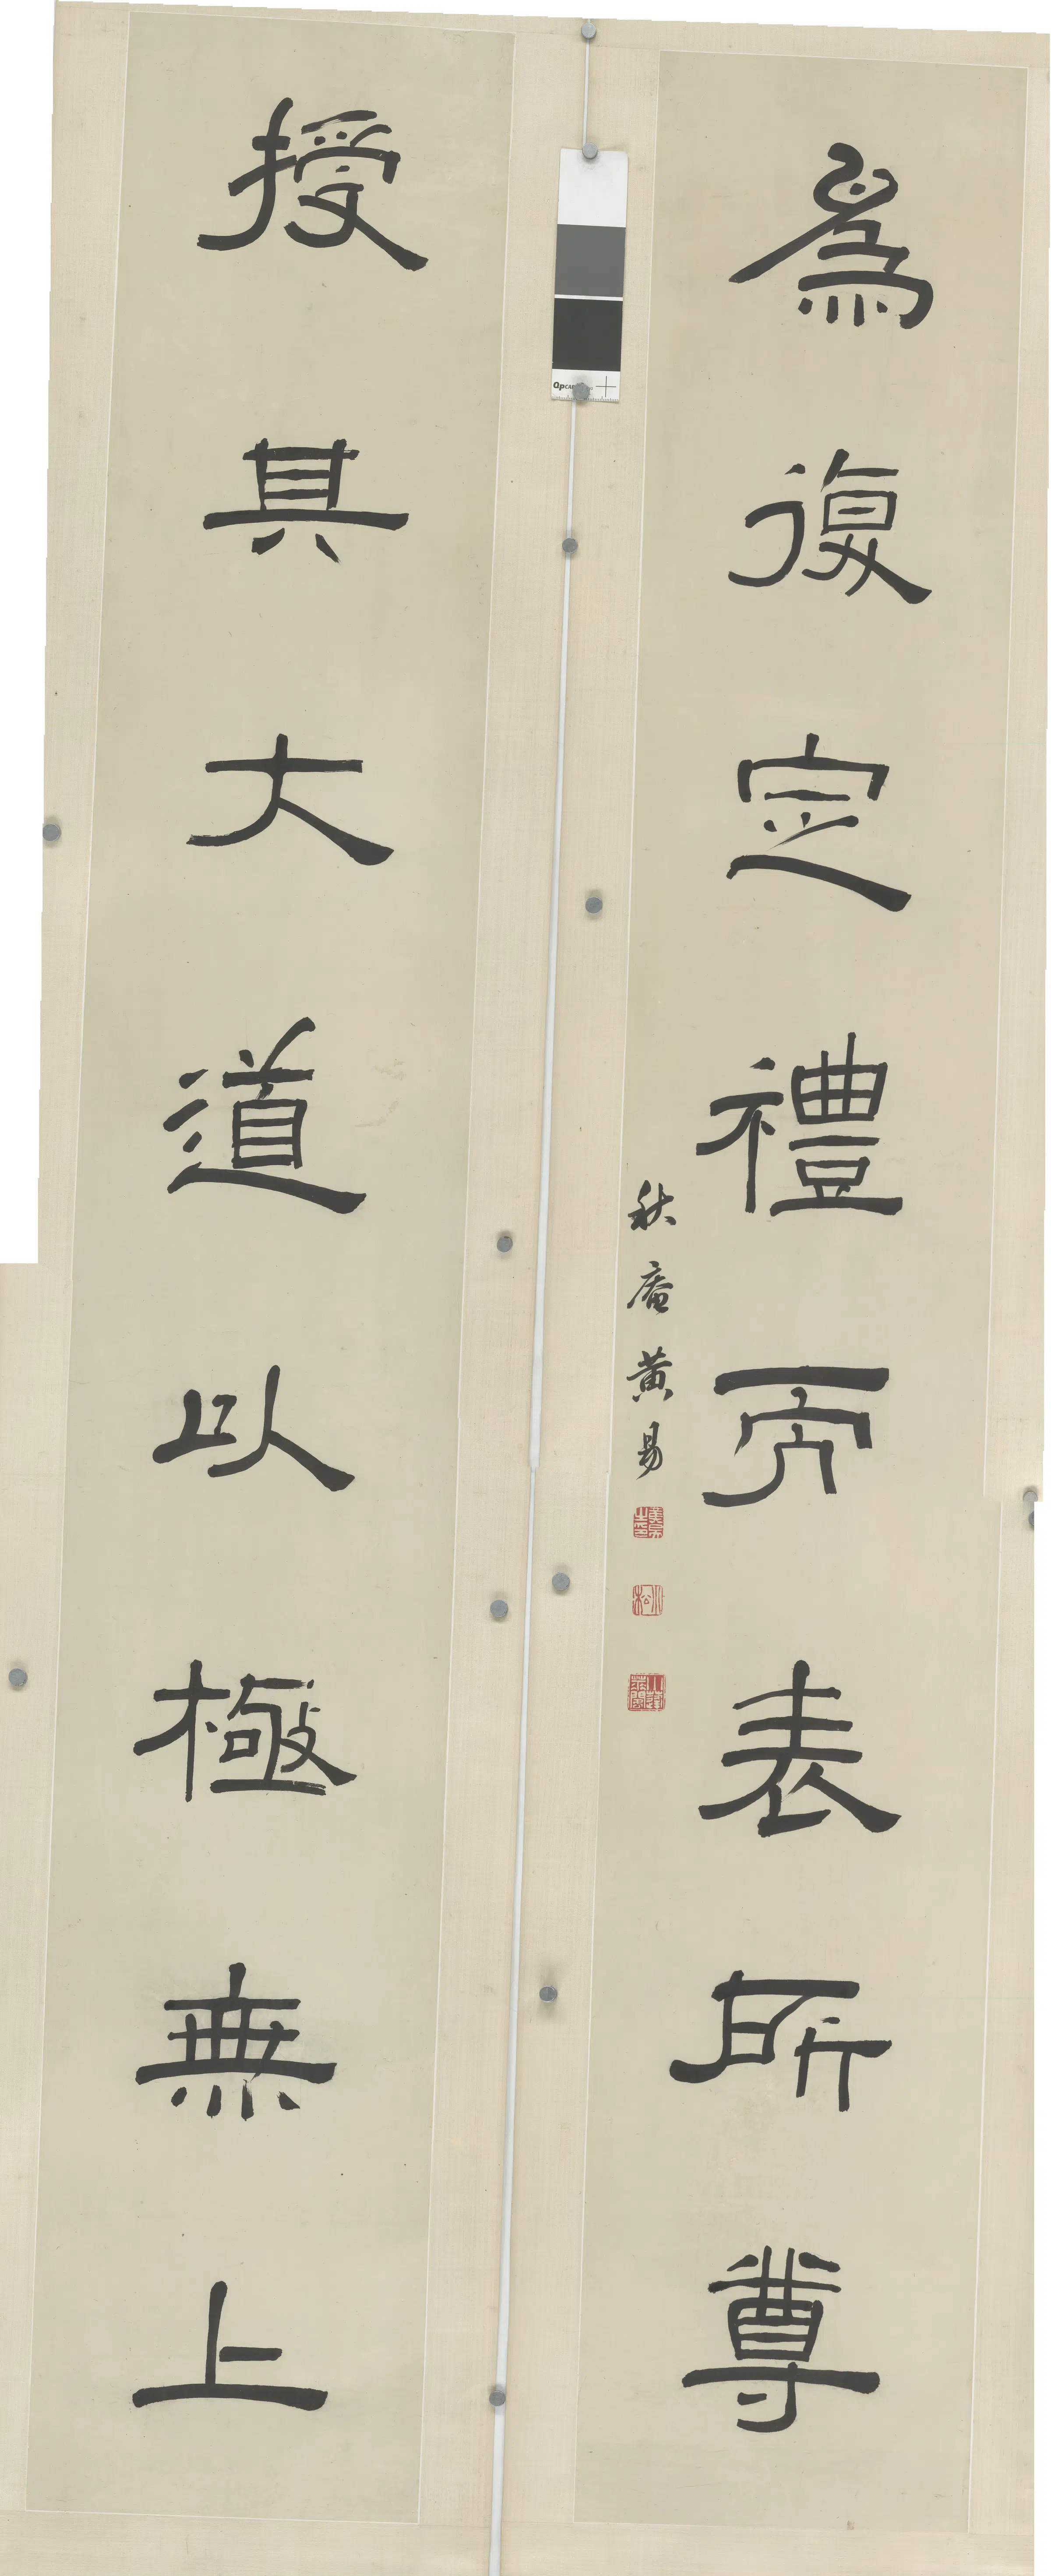 為復定禮而表所尊
秋盦黃易
小松
授其大道以極無上